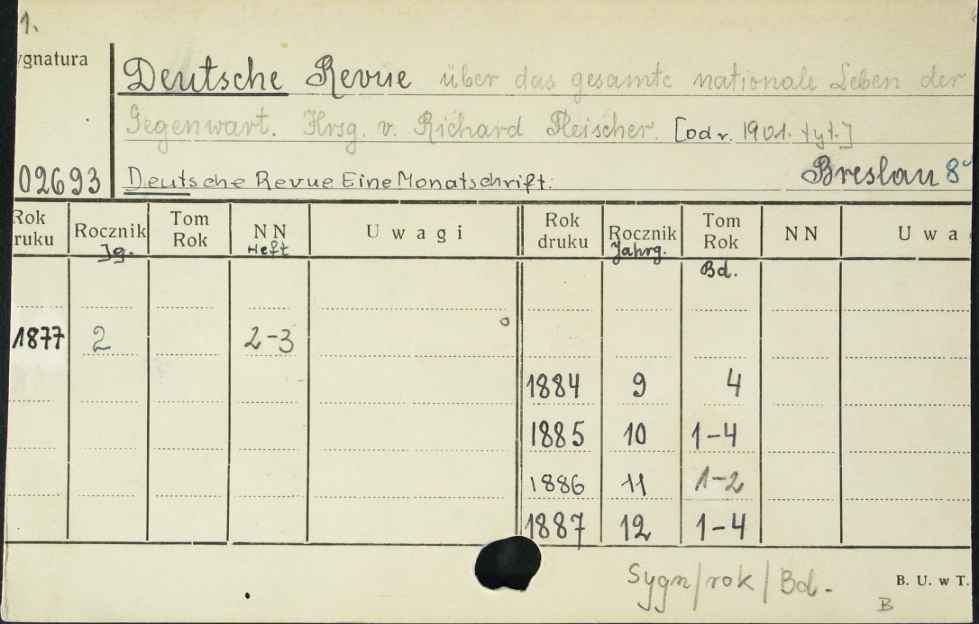 1.
ygnatura
Deutsche Revue über das gesamte nationale Leben der
Gegenwart. Hrsg. v. Richard Fleischer. [od r. 1901. tyt.]
02693 Deutsche Revue Eine Monatschrift. Breslau 8°
Rok ruku Rocznik Jg. Tom Rok NN Heft Uwagi Rok druku Rocznik Jahrg. Tom Rok Bd. NN Uwa
1877 2 2-3
1884 9 4
1885 10 1-4
1886 11 1-2
1887 12 1-4
Sygn/rok/Bd.
B. U. w T.
B